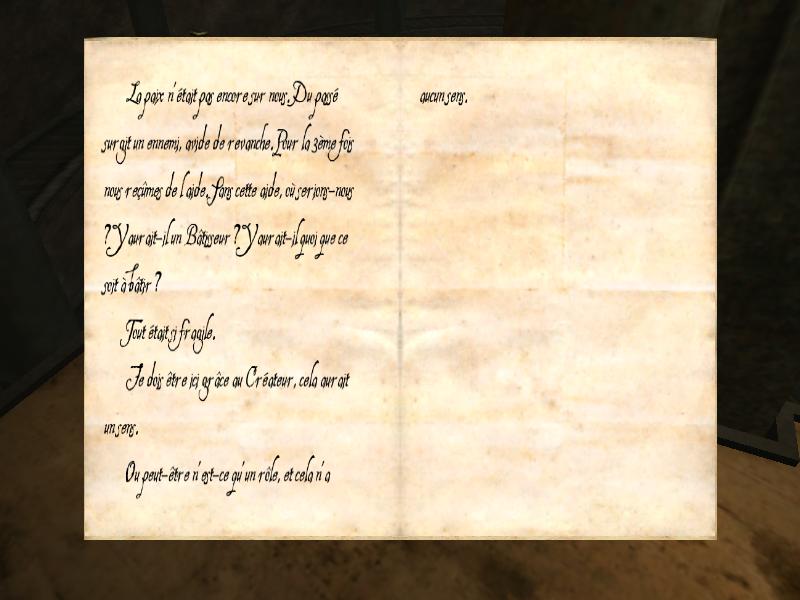 La paix n'était pas encore sur nous. Du passé
surgit un ennemi, avide de revanche. Pour la 3ème fois
nous reçûmes de l'aide. Sans cette aide, où serions-nous
? Y aurait-il un Bâtisseur ? Y aurait-il quoi que ce
soit à bâtir ?
Tout était si fragile.
Je dois être ici grâce au Créateur, cela aurait
un sens.
Ou peut-être n'est-ce qu'un rôle, et cela n'a
aucun sens.